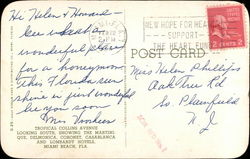 Hi Helen & Howard -
See what a
wonderful place
for a honeymoon
this Florida sun
shine is just wonderful
See you soon
Mrs Voohees
TROPICAL COLLINS AVENUE
LOOKING SOUTH, SHOWING THE MARTINI-
QUE, DELMONICA, CORONET, CASABLANCA,
AND LOMBARDY HOTELS,
MIAMI BEACH, FLA.
NEW HOPE FOR HEARTS
SUPPORT
THE HEART FUND
2 CENTS 2
POST CARD
Miss Helen Phillips
Oak Tree Rd
So Plainfield
N J